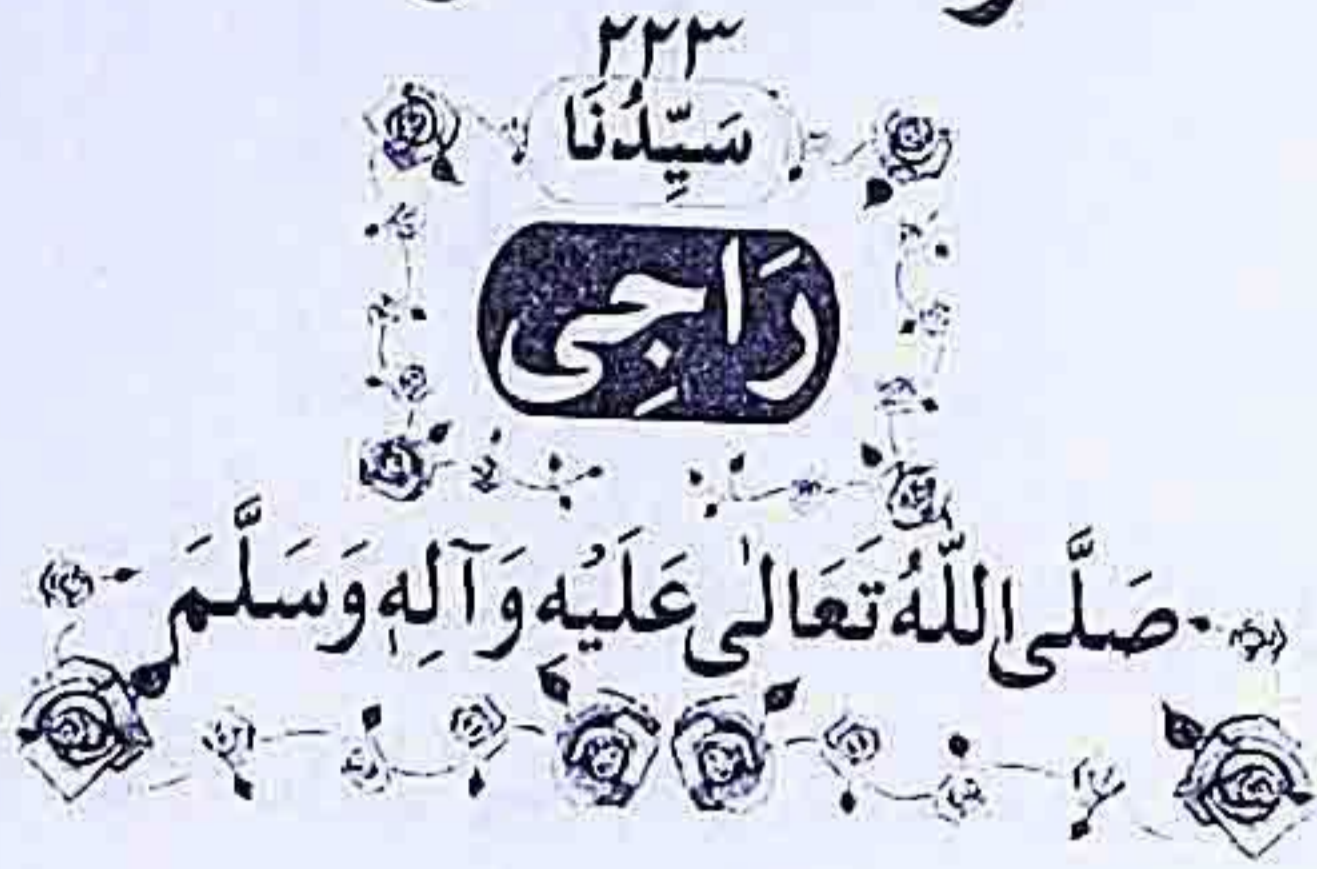 ٢٢٣
سَيِّدُنَا
رَاجِی
صَلَّی اللّٰهُ تَعَالٰی عَلَيْهِ وَآلِهٖ وَسَلَّمَ